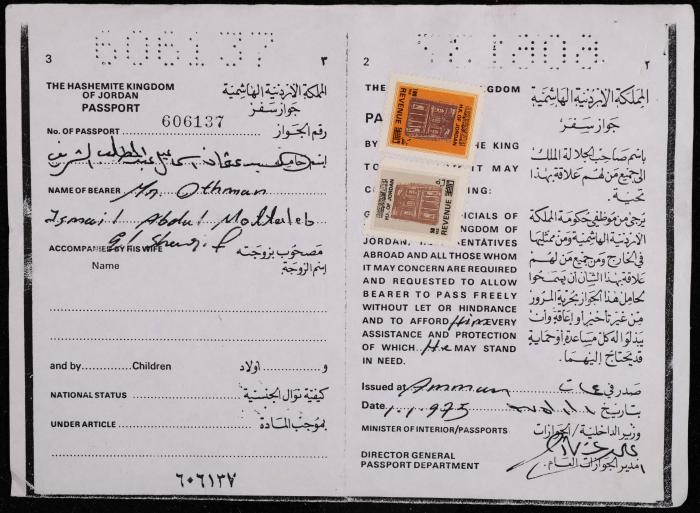 606137
3
٣
THE HASHEMITE KINGDOM
OF JORDAN
PASSPORT
المملكة الأردنية الهاشمية
جواز سفر
No. OF PASSPORT 606137 رقم الجواز
NAME OF BEARER Mr. Othman
Ismail Abdul Mottaleb
El Sharif
ACCOMPANIED BY HIS WIFE
مصحوب بزوجته
Name
اسم الزوجة
and by Children
و اولاد
NATIONAL STATUS
كيفية نوال الجنسية
UNDER ARTICLE
بموجب المادة
٦٠٦١٣٧
2
٢
THE KINGDOM
المملكة الأردنية الهاشمية
PA
جواز سفر
BY THE KING
TO IT MAY
CO NG:
G ICIALS OF
NGDOM OF
JORDAN, ENTATIVES
ABROAD AND ALL THOSE WHOM
IT MAY CONCERN ARE REQUIRED
AND REQUESTED TO ALLOW
BEARER TO PASS FREELY
WITHOUT LET OR HINDRANCE
AND TO AFFORD Him EVERY
ASSISTANCE AND PROTECTION
OF WHICH He MAY STAND
IN NEED.
باسم صاحب الجلالة الملك
الى جميع من لهم علاقة بهذا
تحية.
يرجى من موظفي حكومة المملكة
الأردنية الهاشمية ومن ممثليها
في الخارج ومن جميع من لهم
علاقة بهذا الشأن ان يسمحوا
لحامل هذا الجواز بحرية المرور
من غير تأخير أو إعاقة وأن
يبذلوا له كل مساعدة أو حماية
قد يحتاج إليهما.
REVENUE
H.K. OF JORDAN
H.K. OF JORDAN
REVENUE
Issued at Amman صدر في عمان
Date 1.1.975 بتاريخ
MINISTER OF INTERIOR/PASSPORTS
وزير الداخلية/الجوازات
DIRECTOR GENERAL
PASSPORT DEPARTMENT
مدير الجوازات العام.